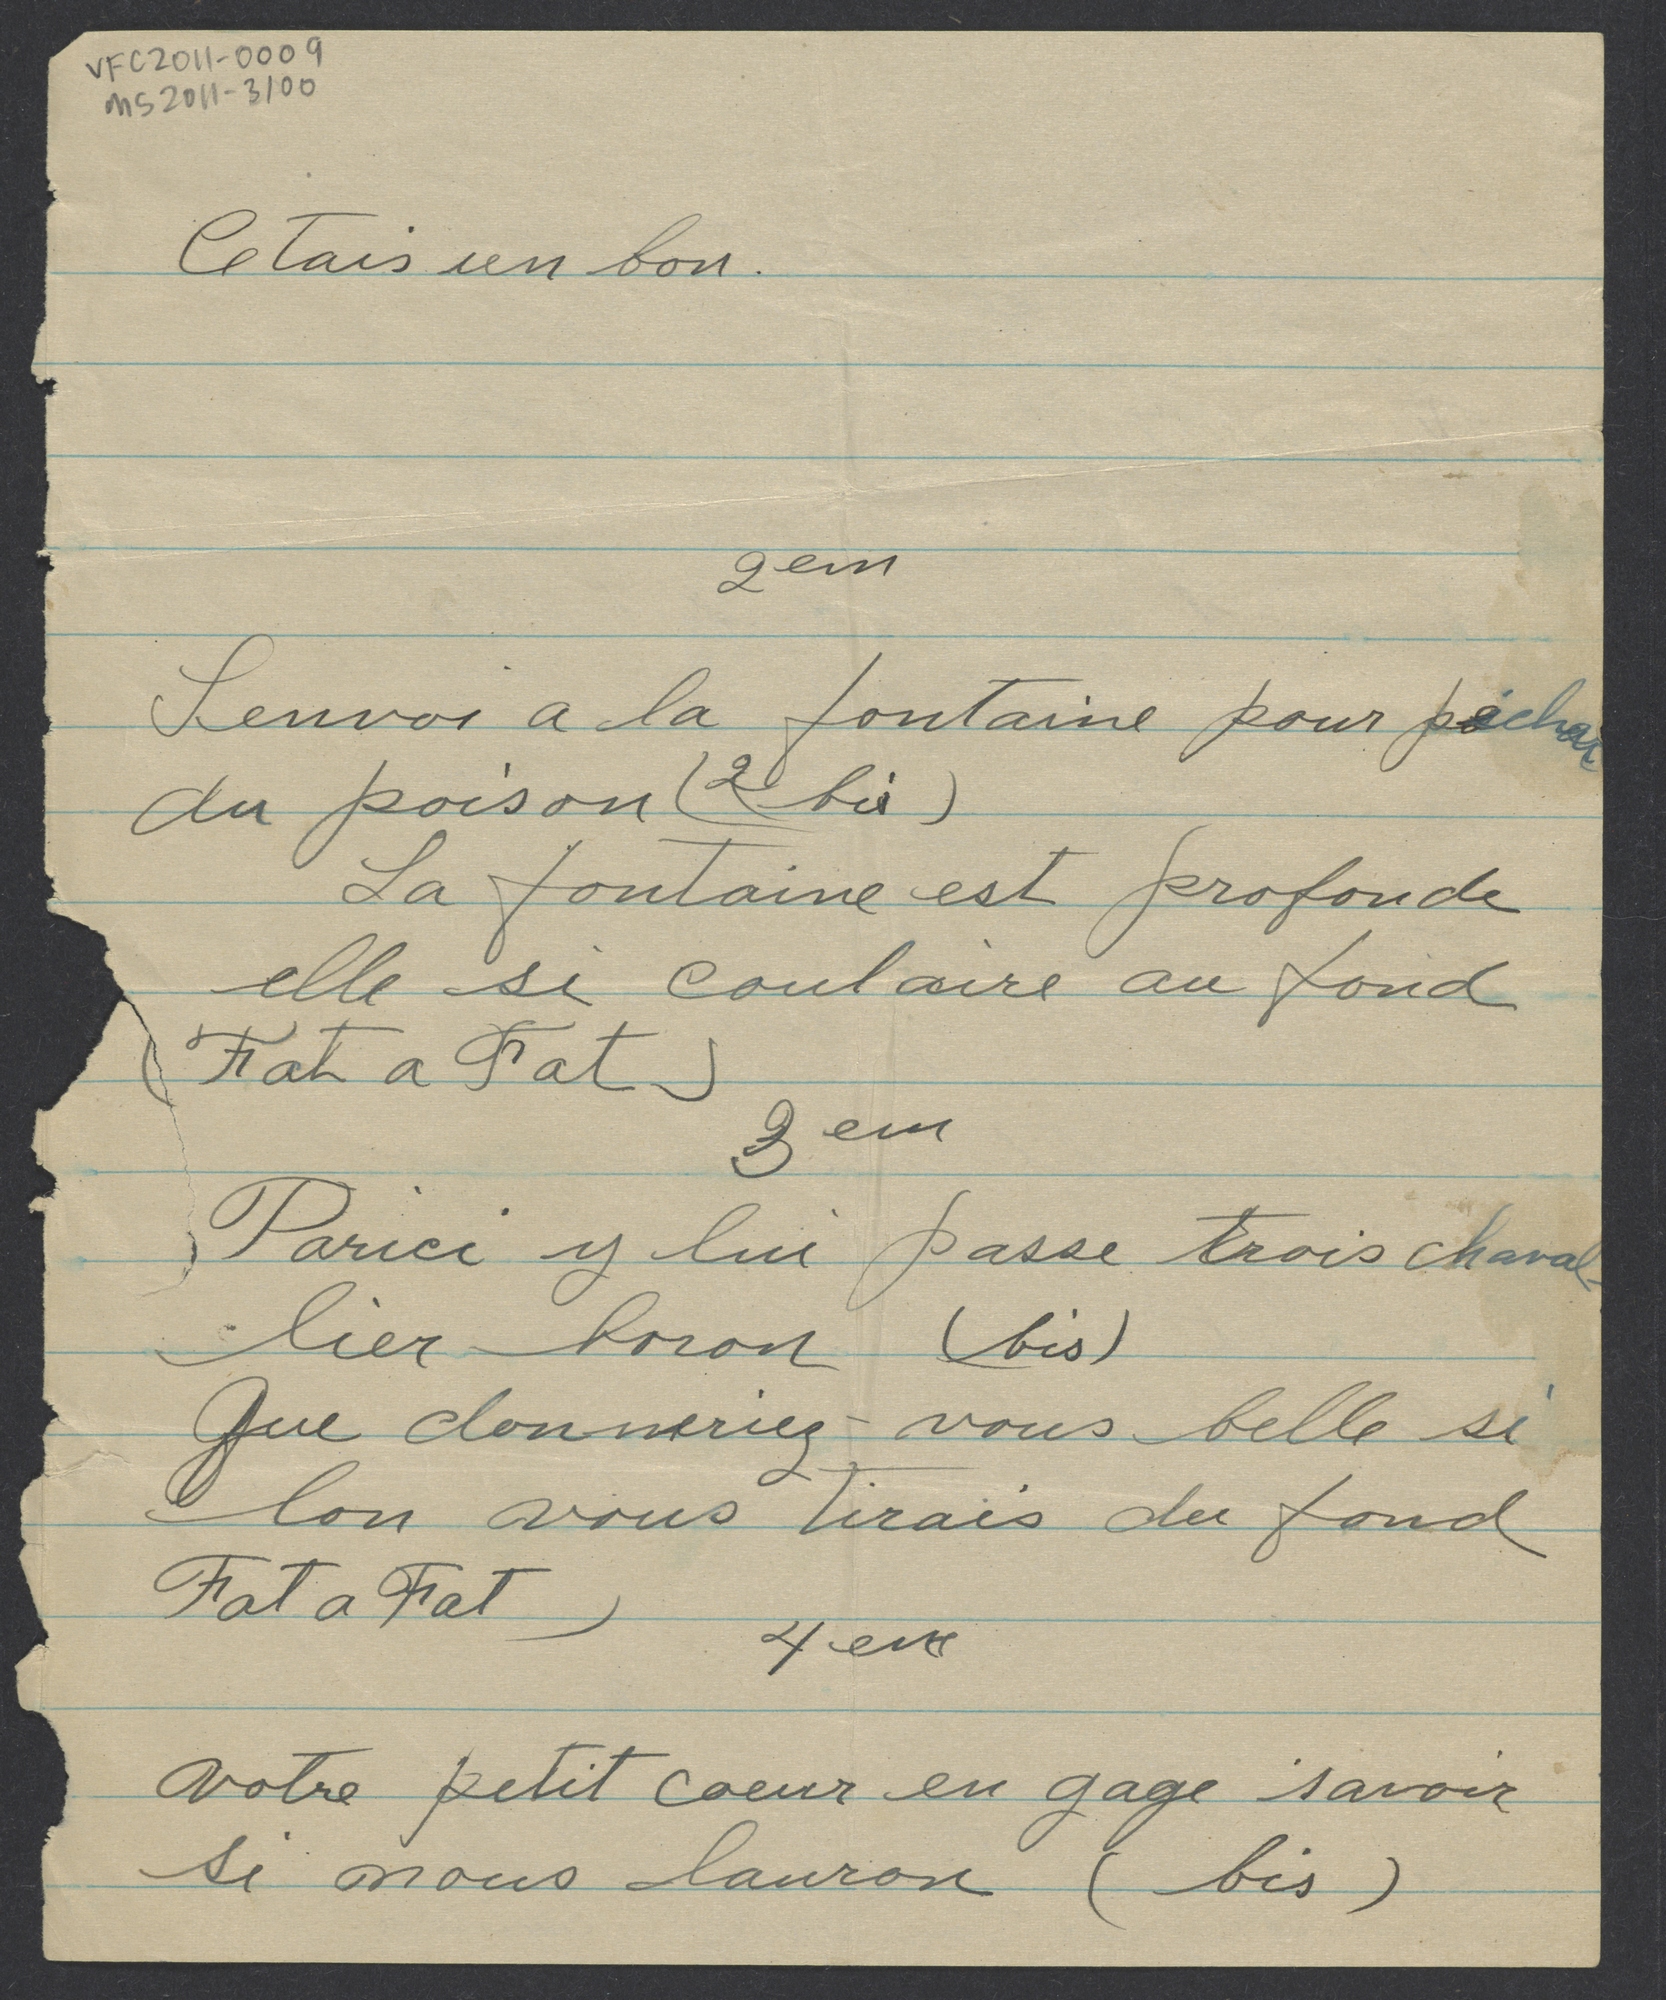 VFC2011-0009
MS2011-3100
Cetais un bon.
2em
Lenvoi a la fontaine pour pècher
du poison (2 bis)
La fontaine est profonde
elle si coulaire au fond
(Fat a Fat)
3em
Parici y lui passe trois chaval-
lier boron (bis)
Que donneriez-vous belle si
lon vous tirais du fond
Fat a Fat)
4em
votre petit coeur en gage savoir
si nous lauron (bis)